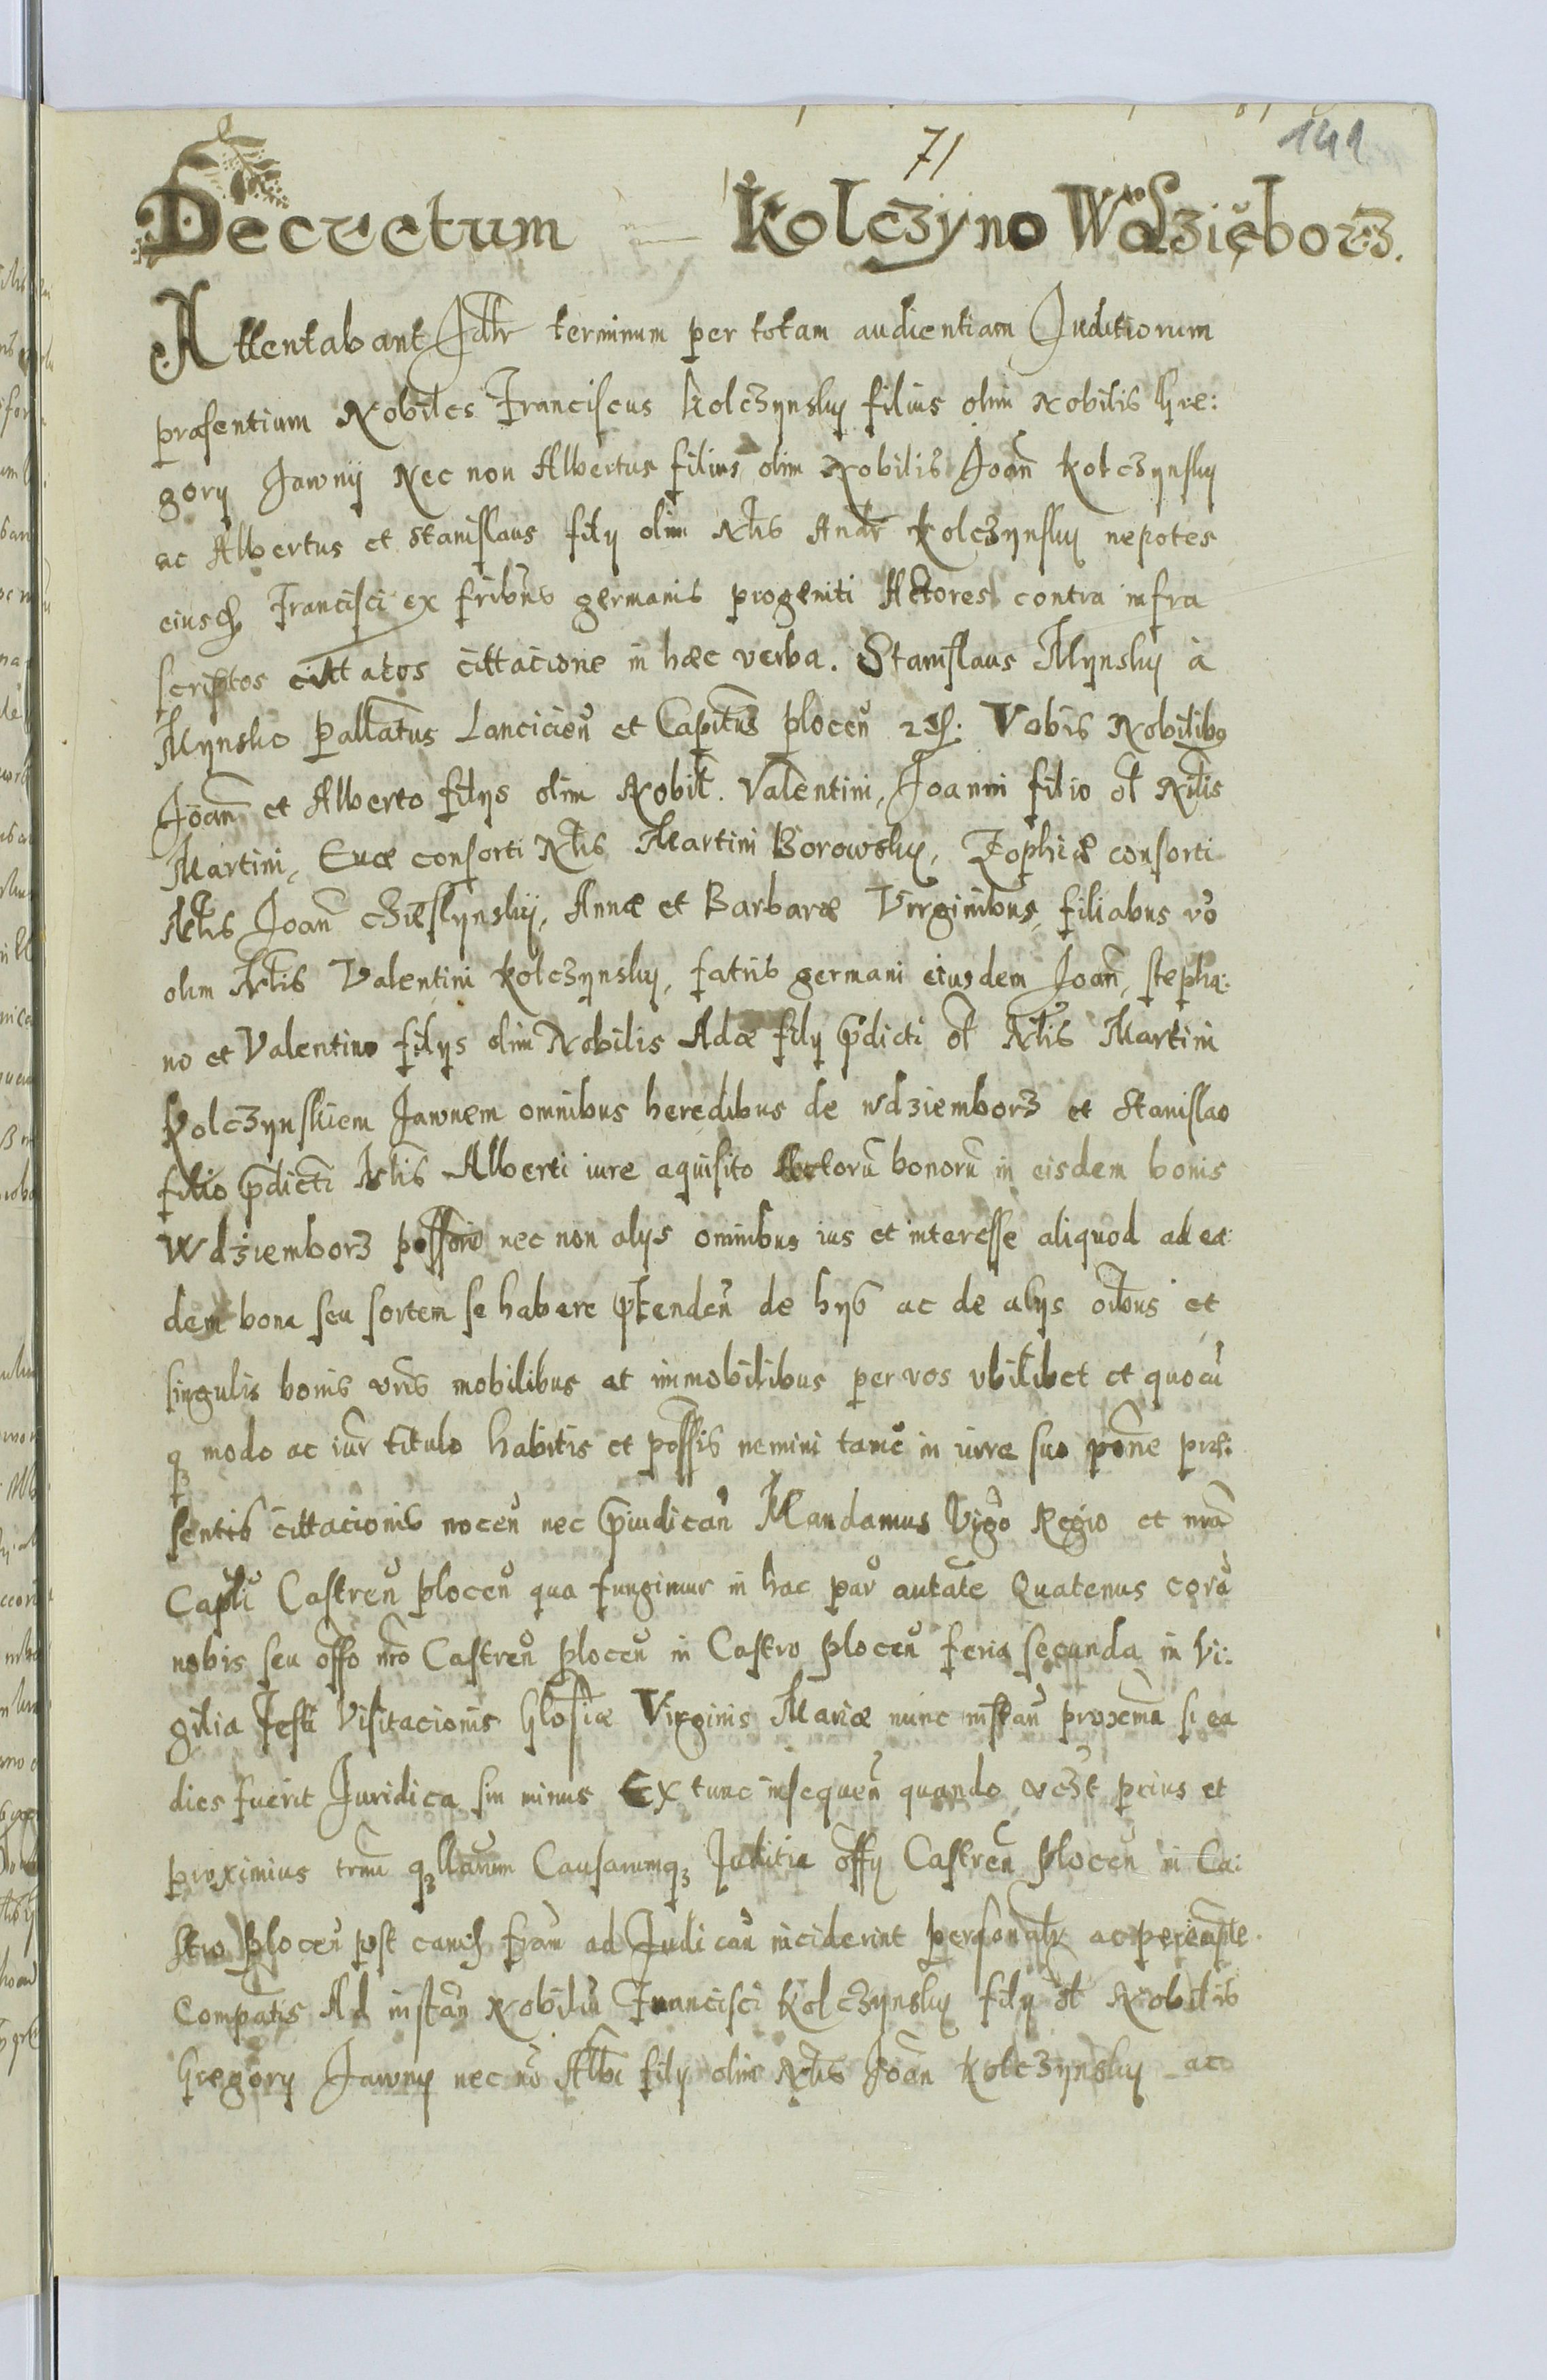 71
141
Decretum Kolczyno Wdzięborz.
Attentabant Idtr terminum per totam audientiam Juditiorum
præsentium Nobiles Franciscus Kolczynsky filius olim Nobilis Gre:
gory Jawny Nec non Albertus filius olim Nobilis Joan̄ Kolczynsky
ac Albertus et Stanislaus fily olim Nlis Andr Kolczynsky nepotes
eiusd Francisci ex fribus germanis progeniti Actores contra infra
scriptos cittatos cittacione in hæc verba. Stanislaus Mynsky à
Mynsko Pallatus Lancicien̄ et Capitus plocen̄ Vobis Nobilibus
Joan̄ et Alberto filys olim Nobil. Valentini, Joanni filio ol Nlis
Martini, Euæ consorti Nlis Martini Borowsky, Zophiæ consorti
Nlis Joan̄ Annæ et Barbaræ Virginibus, filiabus vo
olim Nlis Valentini Kolczynsky, fatris germani eiusdem Joan̄, Stepha:
no et Valentino filys olim Nobilis Adæ fily prædicti ol Nlis Martini
Kolczynskiem Jawnem omnibus heredibus de Wdziemborz et Stanislao
filio prædicti Nlis Alberti iure aquisito bonorū in eisdem bonis
Wdziemborz possori nec non alys omnibus ius et interesse aliquod ad ea
dem bona seu sortem se habere prtenden̄ de hys ac de alys oibus et
singulis bonis vris mobilibus et immobilibus per vos vbilibet et quocū
q3 modo ac iur titulo habitis et possis nemini tamē in iure suo pone præ:
sentis cittacionis nocen̄ nec præiudican̄ Mandamus Vigo Regio et nrā
Capli Castren̄ plocen̄ qua fungimur in hac par autate Quatenus corā
nobis seu offo nro Castren̄ plocen̄ in Castro plocen̄ feria secunda in Vi:
gilia Festi Visitacionis Glosiæ Virginis Mariæ nunc instan̄ proxma si ea
dies fuerit Juridica sin minus Ex tunc insequen̄ quando prius et
proximius trmi q3llarum Causarumq3 Juditia offy Castren̄ plocen̄ in Ca:
stro plocen̄ post eand ad Judican̄ inciderint personalr ac perempte.
Compatis Ad instan̄ Nobiliū Francisci Kolczynsky fily ol Nobilis
Gregory Jawny nec nō Albi fily olim Nlis Joan̄ Kolczynsky ac